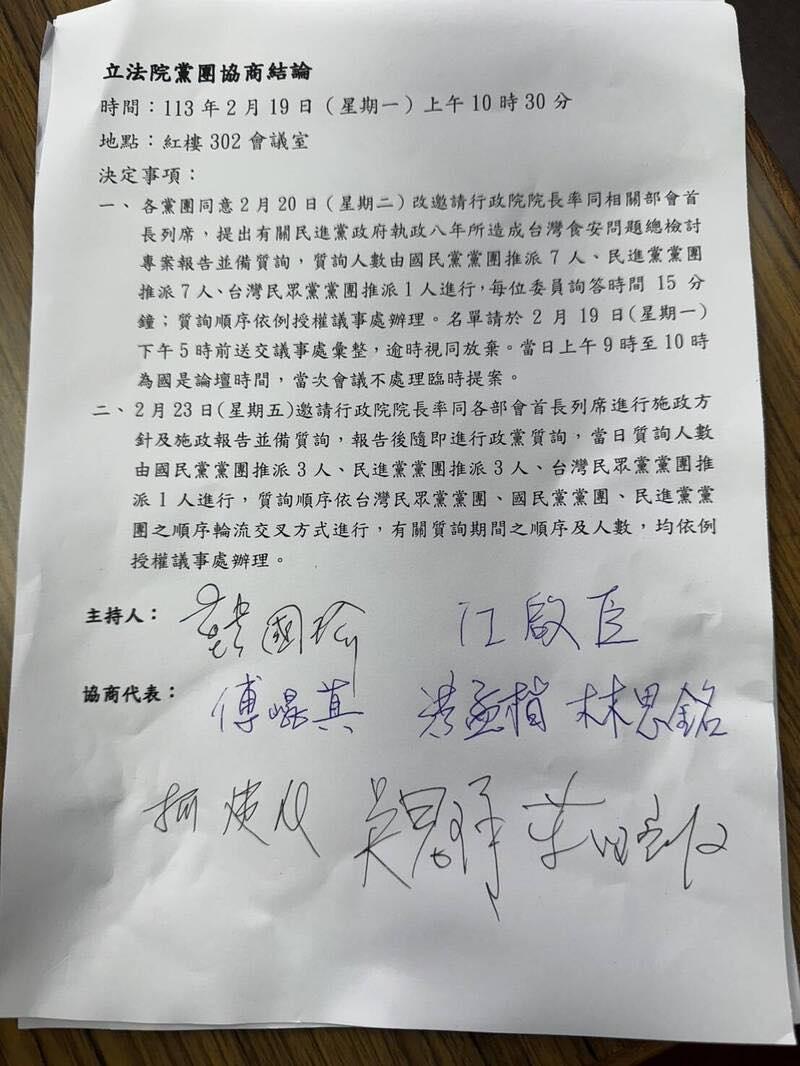 立法院黨團協商結論
時間：113年2月19日（星期一）上午10時30分
地點：紅樓302會議室
決定事項：
一、各黨團同意2月20日（星期二）改邀請行政院院長率同相關部會首
長列席，提出有關民進黨政府執政八年所造成台灣食安問題總檢討
專案報告並備質詢，質詢人數由國民黨黨團推派7人、民進黨黨團
推派7人、台灣民眾黨黨團推派1人進行，每位委員詢答時間15分
鐘；質詢順序依例授權議事處辦理。名單請於2月19日(星期一)
下午5時前送交議事處彙整，逾時視同放棄。當日上午9時至10時
為國是論壇時間，當次會議不處理臨時提案。
二、2月23日(星期五)邀請行政院院長率同各部會首長列席進行施政方
針及施政報告並備質詢，報告後隨即進行政黨質詢，當日質詢人數
由國民黨黨團推派3人、民進黨黨團推派3人、台灣民眾黨黨團推
派1人進行，質詢順序依台灣民眾黨黨團、國民黨黨團、民進黨黨
團之順序輪流交叉方式進行，有關質詢期間之順序及人數，均依例
授權議事處辦理。
主持人： 韓國瑜 江啟臣
協商代表： 傅崐萁 洪孟楷 林思銘
柯建銘 吳思瑤